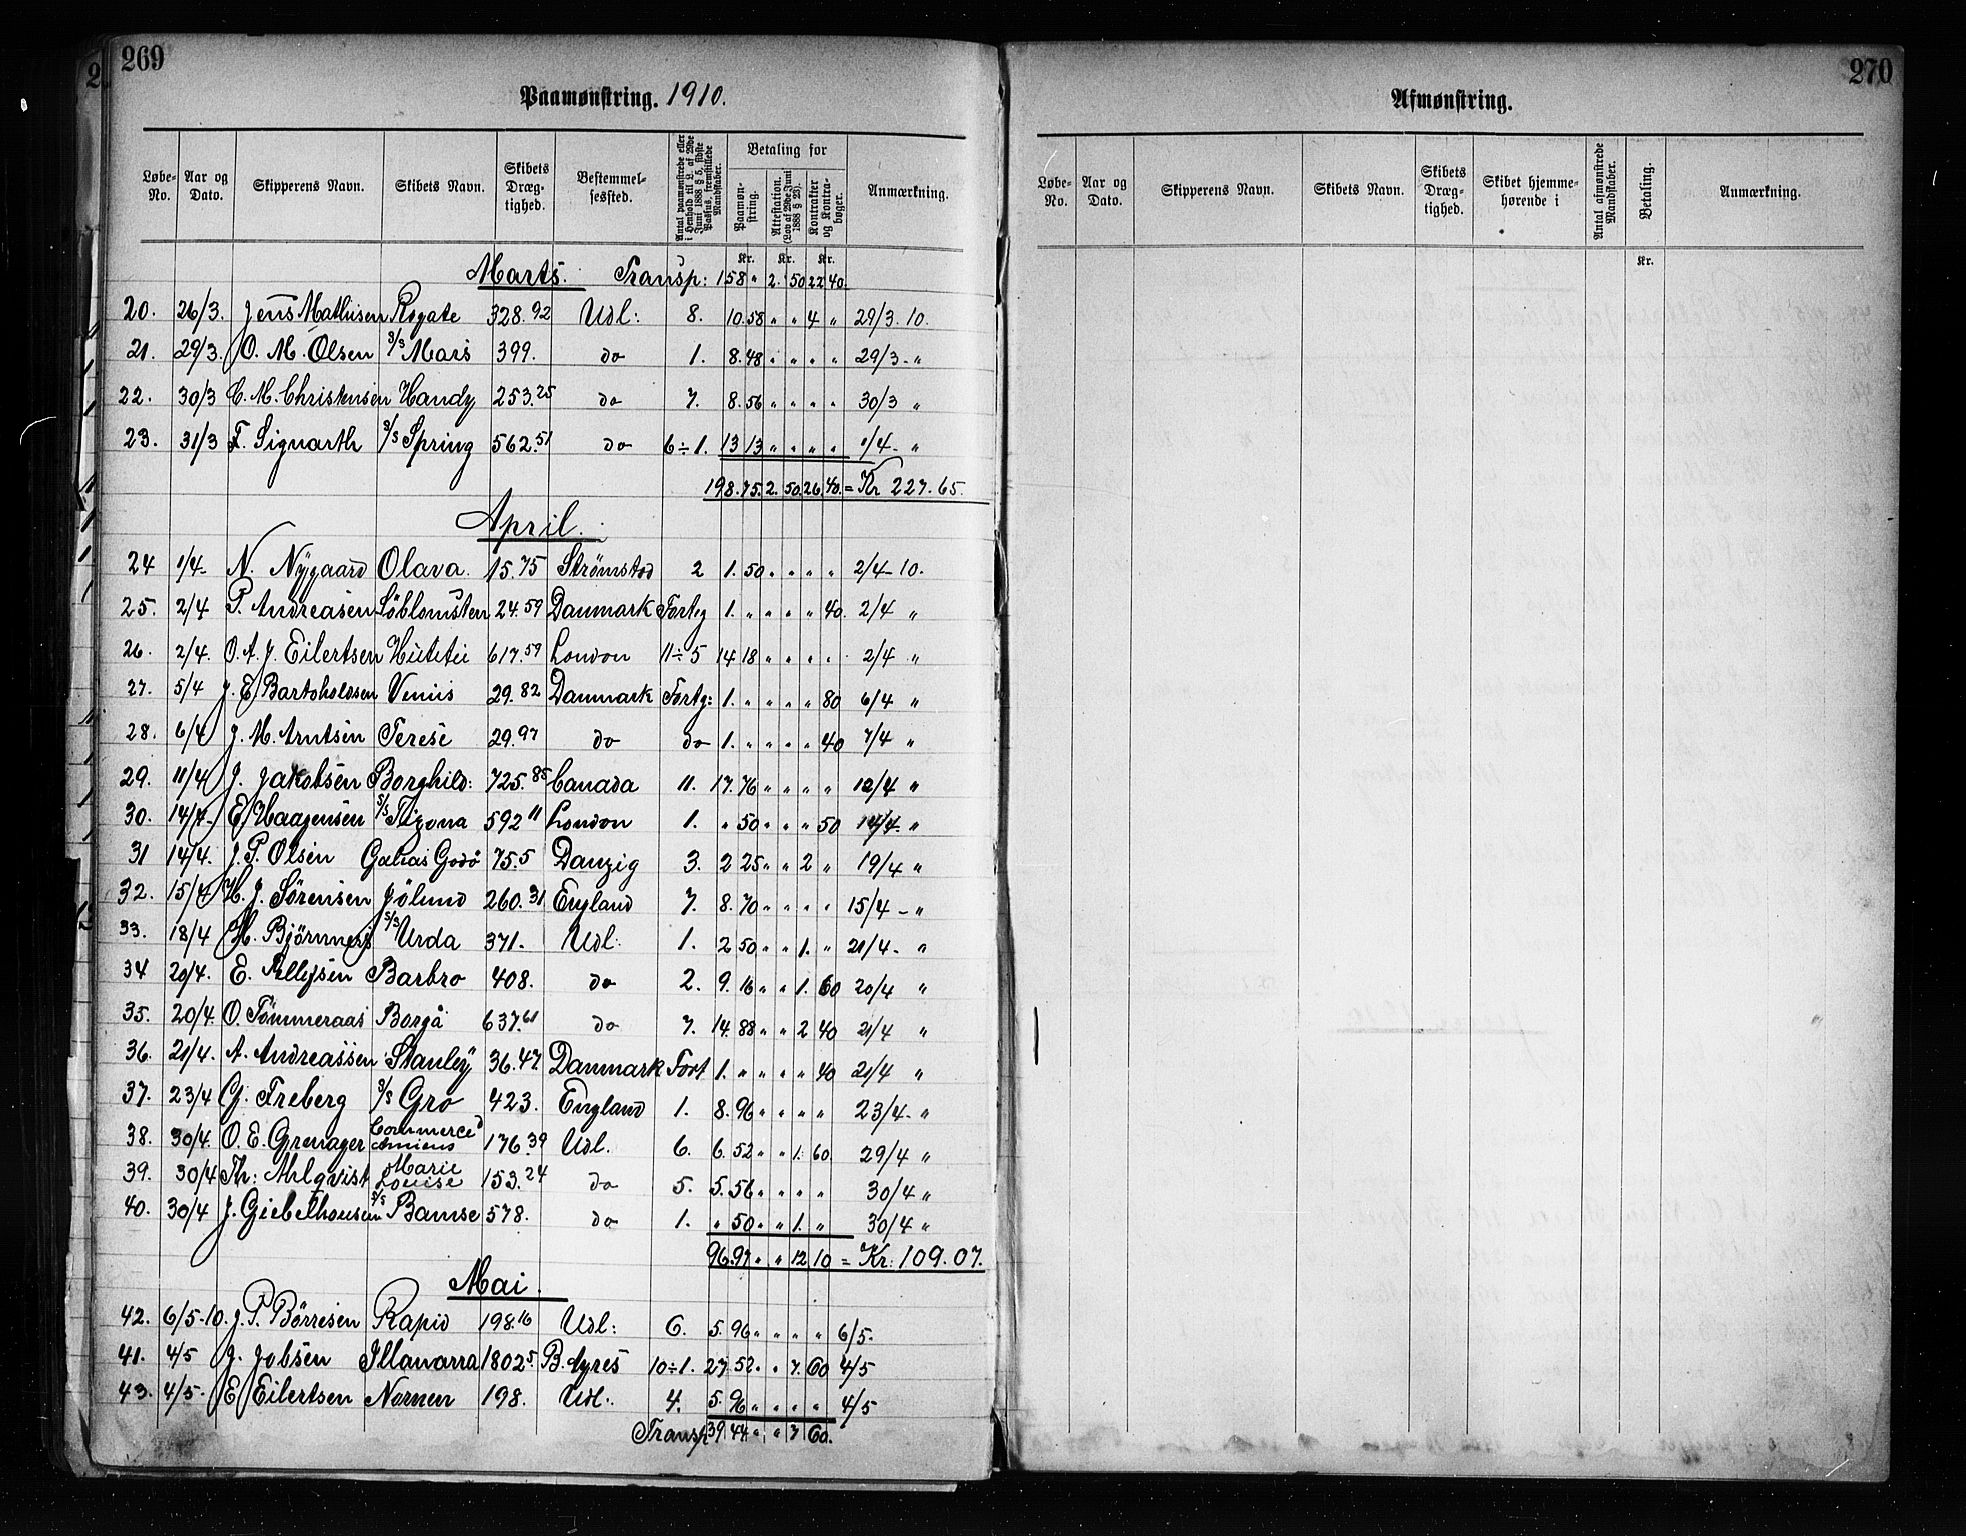 269
Paamønstring. 1910.
Løbe-No. | Aar og Dato. | Skipperens Navn. | Skibets Navn. | Skibets Dræg-tighed. | Bestemmel-sessted. | Antal paamønstrede eller i Henhold til L. af 29de Juni 1888 § 5, sidste Passus, fremstillede Mandskaber. | Betaling for | Paamøn-string. | Attestation. (Lov af 29de Juni 1888 § 23). | Kontrakter og Kontra-bøger. | Anmærkning.
Kr. Kr. Kr.
Marts. Transp: 158 " 2. 50 22 40.
20. 26/3. Jens Mathisen Rogate 328.92 Udl: 8. 10.58 " " 4 " 29/3. 10.
21. 29/3. O. M. Olsen S/S Mars 399. do 1. 8.48 " " " " 29/3 - "
22. 30/3 C. M. Christensen Handy 253.25 do 7. 8.56 " " " " 30/3 "
23. 31/3 F. Signarth S/S Spring 562.51 do 6÷1. 13 13 " " " " 1/4 - "
198.75. 2. 50. 26. 40. = Kr 227.65.
April.
24 1/4- N. Nygaard Olava. 15.75 Strømstad 2 1.50 " " " " 2/4-10.
25. 2/4 P. Andreasen Söblomsten 24.59 Danmark Forteg 1. " " " " 40. 2/4 "
26. 2/4. O. A. J. Eilertsen 617.59 London 11÷5 14 18 " " " " 2/4 "
27. 5/4 J. E. Bartholdsen Venus 29.82 Danmark Fortg: 1. " " " " 80 6/4 "
28. 6/4 J. M. Arntsen Terese 29.97 do do 1. " " " " 40 7/4 "
29. 11/4 J. Jakobsen Borghild: 725.85 Canada 11. 17.76 " " " " 12/4 "
30. 14/4- E. Haagensen S/S 592 11 London 1. " 50 " " " 50 14/4- "
31 14/4. J. P. Olsen Godö 75.5 Danzig 3. 2 25 " " 2 " 19/4 "
32. 15/4 H. J. Sørensen Jölund 260.31 England 7. 8.70 " " " " 15/4 - "
33. 18/4 H. S/S Urda 371. Udl: 1. 2 50 " " 1. " 21/4 - "
34 20/4. E. Barbro 408. do 2. 9.16 " " 1. 60 20/4 "
35. 20/4. O. Tömmeraas Borgå 637.61 do 7. 14.88 " " 2 40 21/4 "
36. 21/4. A. Andreassen Stanley 36.47. Danmark Fort 1. " " " " 40 21/4 "
37. 23/4 G. Freberg S/S Gro 423. England 1. 8.96 " " " " 23/4 - "
38. 30/4. O. E. Grenager Commerce d'Amiens 176.39 Udl. 6. 6.52 " " 1. 60. 29/4 "
39. 30/4 Th: Ahlqvist Marie Louise 153.24 do 5. 5.56 " " " " 30/4 "
40. 30/4 J. Giebelhousen S/S Bamse 578. do 1. " 50 " " 1. " 30/4 "
96.97 " " 12 10 = Kr: 109.07.
Mai.
42. 6/5-10. J. P. Börresen Rapid 198.16 Udl: 6. 5.96 " " " " 6/5.
41. 4/5 J. Jobsen Illanarra 1802 5. B. Ayres 10÷1. 27.52. " " 7. 60 4/5
43. 4/5. E. Eilertsen Nornen 198. Udl. 4. 5.96 " " " " 4/5
Transp 39 44 " " 7 60.
270
Afmønstring.
Løbe-No. | Aar og Dato. | Skipperens Navn. | Skibets Navn. | Skibets Dræg-tighed. | Skibet hjemme-hørende i | Antal afmønstrede Mandskaber. | Betaling. | Anmærkning.
Kr.